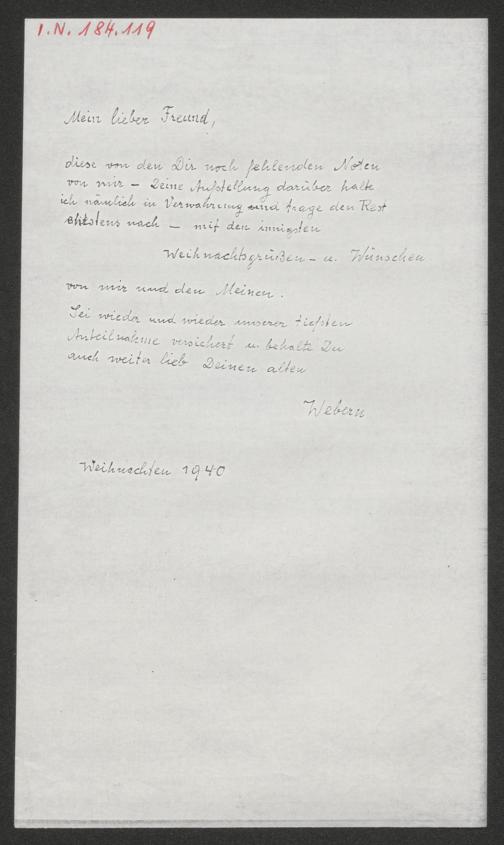 I.N. 184.119
Mein lieber Freund,
diese von den Dir noch fehlenden Noten
von mir – Deine Aufstellung darüber halte
ich nämlich in Verwahrung und trage den Rest
ehestens nach – mit den innigsten
Weihnachtsgrüßen – u. Wünschen
von mir und den Meinen.
Sei wieder und wieder unserer tiefsten
Anteilnahme versichert u. behalte Du
auch weiter lieb Deinen alten
Webern
Weihnachten 1940